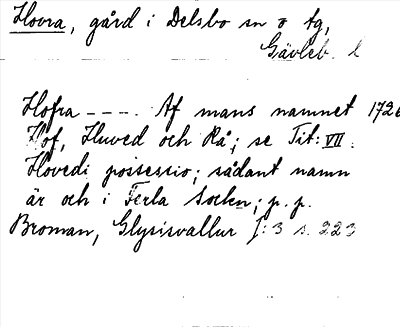 Hovra, gård i Delsbo sn o tg,
Gävleb. l
Hofra ----. Af mans namnet 1726
Hof, Huved och Rå; se Tit: VII.
Hovedi possessio; sådant namn
är och i Ferla Sockn; p. p.
Broman, Glysisvallur I: 3 s. 223